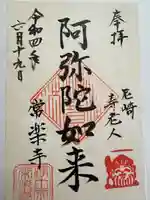 奉拝
尼崎
寿老人
阿弥陀如来
常楽寺
令和四年
六月十九日